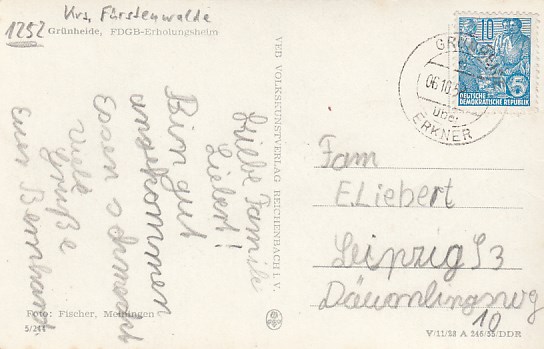 Krs. Fürstenwalde
1252
Grünheide, FDGB-Erholungsheim
Liebe Familie
Liebert!
Bin gut
angekommen
Essen schmeckt
Viele
Grüße
Euer Bernhard
Foto: Fischer, Meiningen
5/244
VEB VOLKSKUNSTVERLAG REICHENBACH i. V.
GRÜNHEIDE
06.10.5
über
ERKNER
10
5
DEUTSCHE
DEMOKRATISCHE REPUBLIK
Fam
E. Liebert
Leipzig S3
Däumlingsweg
10
V/11/28 A 246/55/DDR